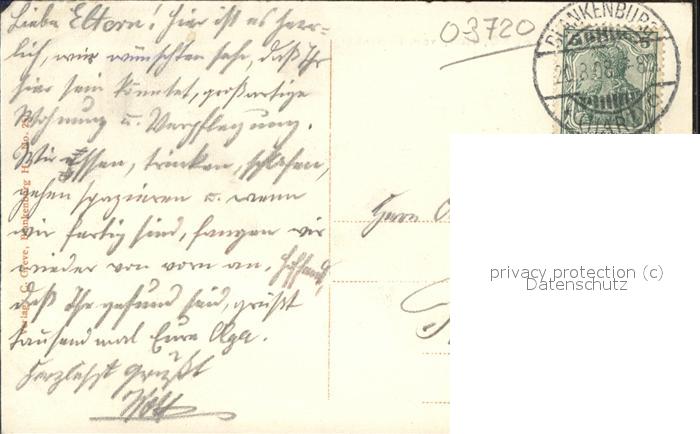 Liebe Eltern! Hier ist es herr-
lich, wir wünschten sehr, daß Ihr
hier sein könntet, großartige
Wohnung u. Verpflegung.
Wir essen, trinken, schlafen,
gehen spazieren u. wenn
wir fertig sind, fangen wir
wieder von vorn an. Hoffend,
daß Ihr gesund seid, grüßt
tausend mal Eure Olga.
Herzlichst grüßt
03720
BLANKENBURG
8.08
(HARZ)
Herrn
Verlag C. Greve, Blankenburg H. No.
privacy protection (c)
Datenschutz